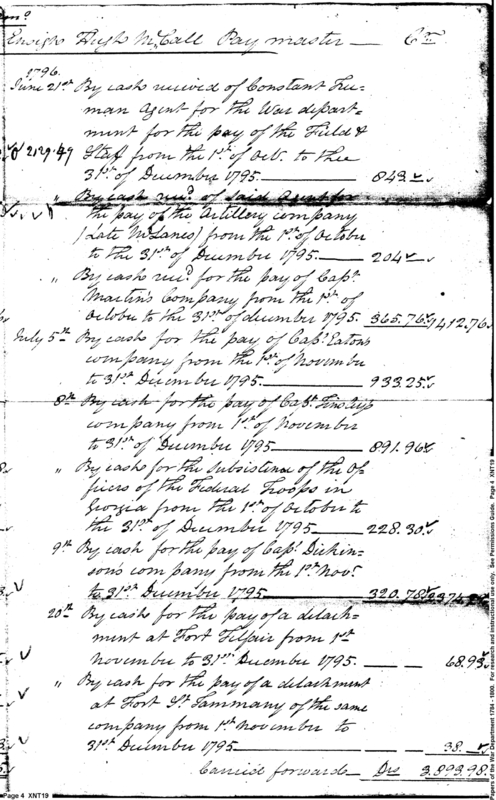 Ensign Hugh McCall Pay master — Cr
1796.
June 21st By cash received of Constant Free=
man Agent for the War depart=
ment for the pay of the Field &
2129.49 Staff from the 1st of Octr. to the
31st of December 1795. 843
" By cash recd. of said Agent for
the pay of the Artillery company
(Late McLanes) from the 1st of October
to the 31st of December 1795. 204
" By cash recd. for the pay of Capt.
Martin's Company from the 1st of
October to the 31st of december 1795. 365.76 1412.76
July 5th By cash for the pay of Capt. Eatons
company from the 1st of November
to 31st December 1795. 933.25
8th By cash for the pay of Capt.
company from 1st of November
to 31st of December 1795. 891.96
" By cash for the subsistence of the Of=
ficers of the Federal Troops in
Georgia from the 1st of October to
the 31st of December 1795. 228.30
9th By cash for the pay of Capt. Dickin=
son's company from the 1st Novr.
to 31st December 1795. 320.78
20th By cash for the pay of a detach=
ment at Fort Telfair from 1st
November to 31st December 1795. 68.93
" By cash for the pay of a detachment
at Fort St Tammany of the same
company from 1st November to
31st December 1795 38
Carried forward Drs 3.893.98
Page 4 XNT19
Papers of the War Department 1784-1800. For research and instructional use only. See Permissions Guide. Page 4 XNT19